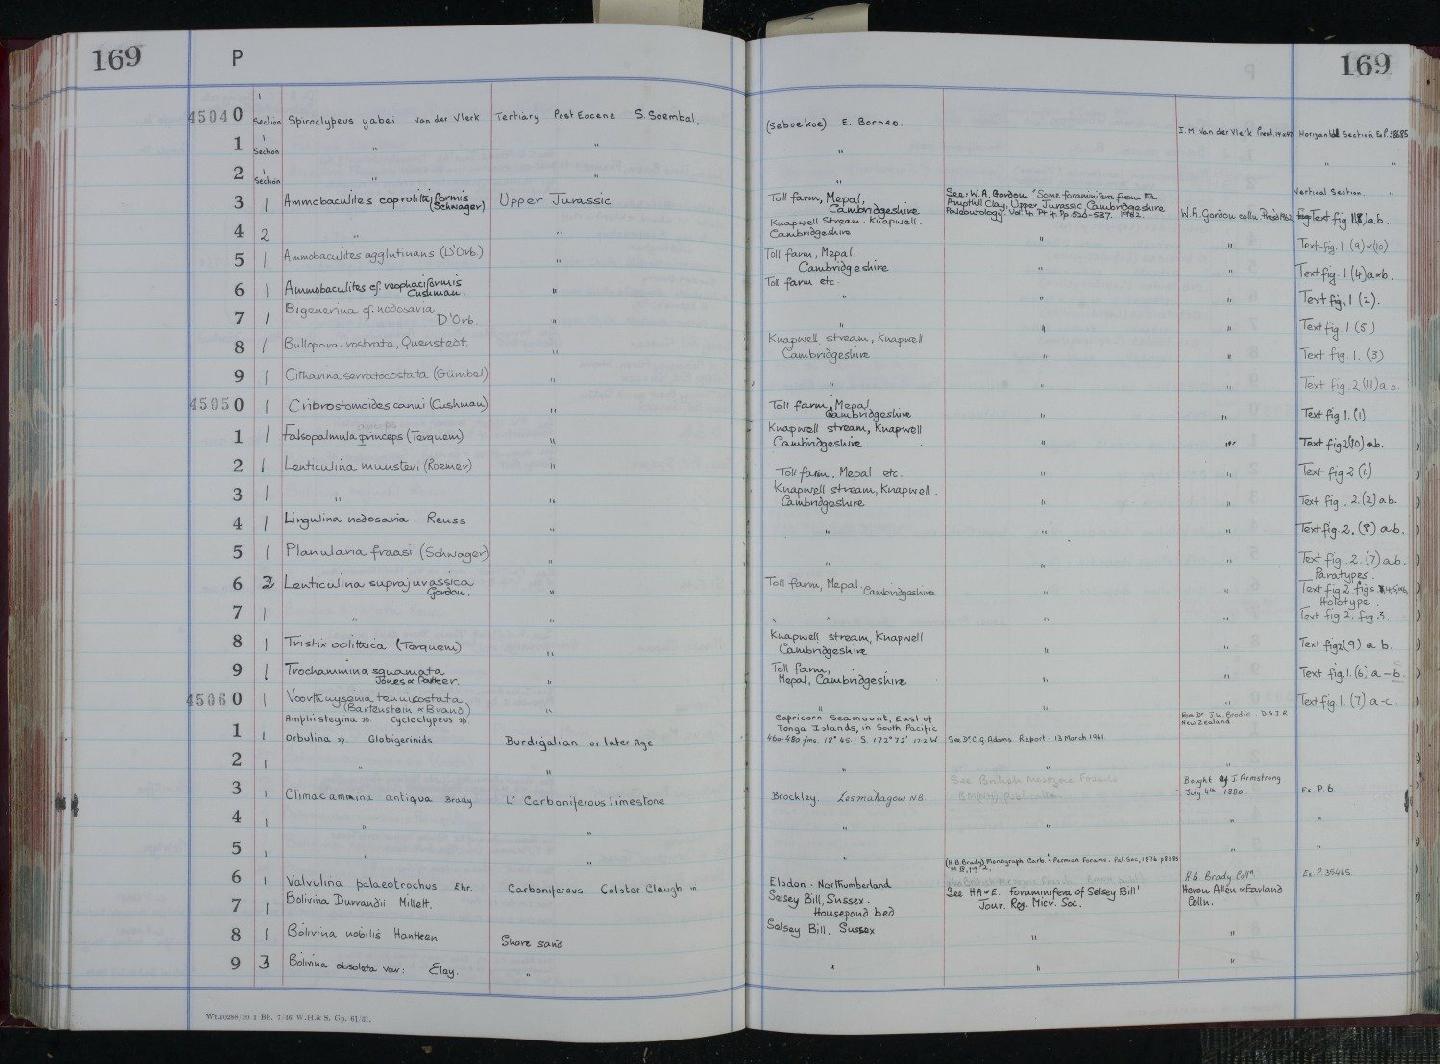 169 P 169
45040 1 Section Spiroclypeus yabei van der Vlerk Tertiary Post Eocene S. Soembal. (Seboekoe) E. Borneo. I. M. van der Vlerk Horizontal Section
1 1 Section " " "
2 1 Section " " Vertical Section.
3 1 Ammobaculites coprolithiformis (Schwager) Upper Jurassic Toll farm, Mepal, Cambridgeshire See: W.A. Gordon 'Some foraminifera from the Ampthill Clay, Upper Jurassic Cambridgeshire Palaeontology Vol. 4. Pt 4. Pp 520-537. 1962. W.A. Gordon colln Text fig
4 2 " " Knapwell Stream. Knapwell. Cambridgeshire " " Text-fig. 1 (9)+(10)
5 1 Ammobaculites agglutinans (D'Orb.) " Toll farm, Mepal. Cambridgeshire " " Text fig. 1 (4) a+b.
6 1 Ammobaculites cf. reophaciformis Cushman. " Toll farm etc. " " " Text fig. 1 (2).
7 1 Bigenerina cf. nodosaria D'Orb. " " " " Text fig. 1 (5)
8 1 Bullopora rostrata, Quenstedt. " Knapwell stream, Knapwell Cambridgeshire " " Text fig. 1. (3)
9 1 Citharina serratocostata (Gümbel) " " " " Text fig. 2 (11) a
45050 1 Cribrostomoides canui (Cushman) " Toll farm, Mepal Cambridgeshire " " Text fig 1. (1)
1 1 Falsopalmula princeps (Terquem) " Knapwell stream, Knapwell Cambridgeshire " " Text fig 2 (10) ab.
2 1 Lenticulina munsteri (Roemer) " Toll farm. Mepal etc. " " Text fig 2 (1)
3 1 " " Knapwell stream, Knapwell. Cambridgeshire " " Text fig. 2. (2) ab.
4 1 Lingulina nodosaria Reuss " " " " Text fig. 2. (8) ab.
5 1 Planularia fraasi (Schwager) " " " " Text fig. 2. (7) ab.
6 2 Lenticulina suprajurassica Gordon. " Toll farm, Mepal. Cambridgeshire " " Paratypes. Text fig 2. figs
7 1 " " " " " " Holotype. Text fig 2. fig. 3.
8 1 Tristix oolitica (Terquem) " Knapwell stream, Knapwell Cambridgeshire " " Text fig 2 (9) a b.
9 1 Trochammina squamata Jones & Parker. " Toll farm, Mepal, Cambridgeshire " " Text fig 1. (6) a-b.
45060 1 Voorthuysenia tenuicostata (Bartenstein & Brand) " " " " Text fig 1. (7) a-c.
1 1 Amphistegina ». Cycloclypeus ». Orbulina ». Globigerinids Burdigalian or later Age Capricorn Seamount, East of Tonga Islands, in South Pacific 460-480 fms. 18° 45. S. 172° See Dr. C.G. Adams Report. 13 March 1961. Dr J.W. Brodie. D.S.I.R. New Zealand
2 1 " " " "
3 1 Climacammina antiqua Brady L. Carboniferous limestone Brockley. Lesmahagow N.B. See British Mesozoic Fossils BM(NH) publication Bought of J. Armstrong July 4th 1880. Ex. P. 6
4 1 " " " " " "
5 1 " " " " "
6 1 Valvulina palaeotrochus Ehr. Carboniferous Elsdon. Northumberland (H.B. Brady) Monograph Carb. & Permian Forams. Pal. Soc, 1876 H.B. Brady Colln Ex. P. 35415.
7 1 Bolivina Durrandii Millett. Selsey Bill, Sussex. Housepond bed See HA & E. 'Foraminifera of Selsey Bill' Jour. Roy. Micr. Soc. Heron Allen & Earland Colln.
8 1 Bolivina nobilis Hantken Shore sand Selsey Bill. Sussex " "
9 3 Bolivina obsoleta var: Eley. " " " "
Wt.10288/39 1 Bk. 7/46 W.H.& S. Gp. 61/3.